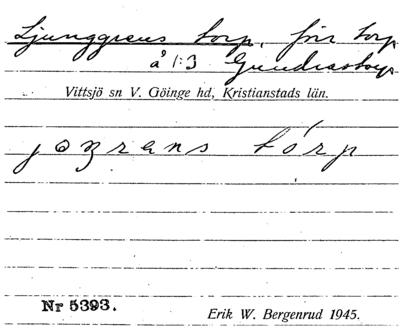 Ljunggrens torp, för torp
å 1:3 Gundrastorp
Vittsjö sn V. Göinge hd, Kristianstads län.
törp
Nr 5393.
Erik W. Bergenrud 1945.